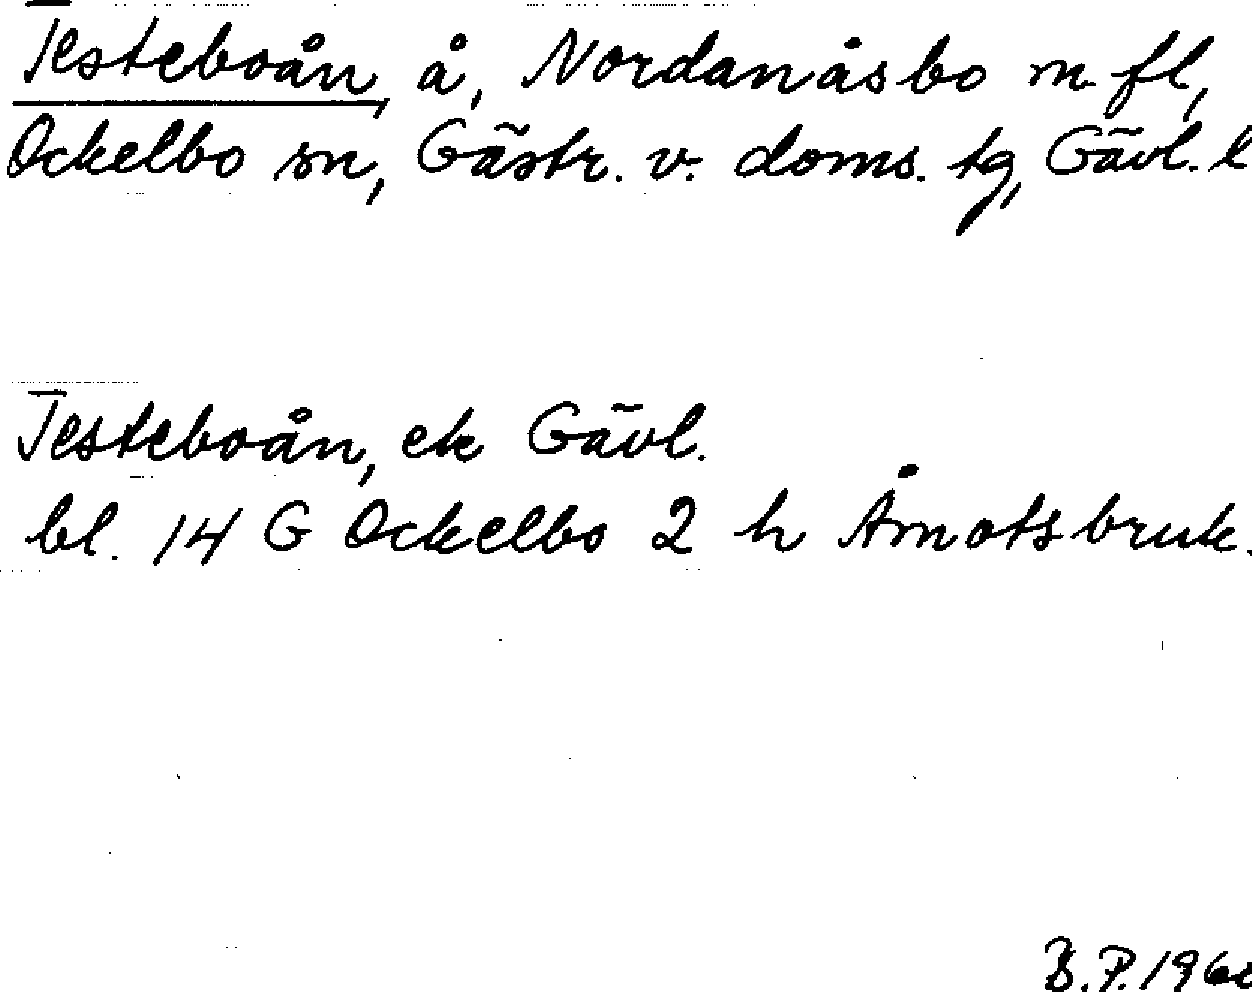 Testeboån, å, Nordanåsbo m. fl,
Ockelbo sn, Gästr. v. doms. tg, Gävl. l
Testeboån, ek Gävl.
bl. 14 G Ockelbo 2 h Åmotsbruk.
B.P. 196